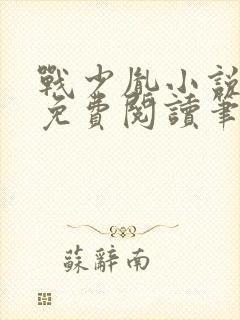 戰少胤小說
免費閱讀筆
蘇辭南